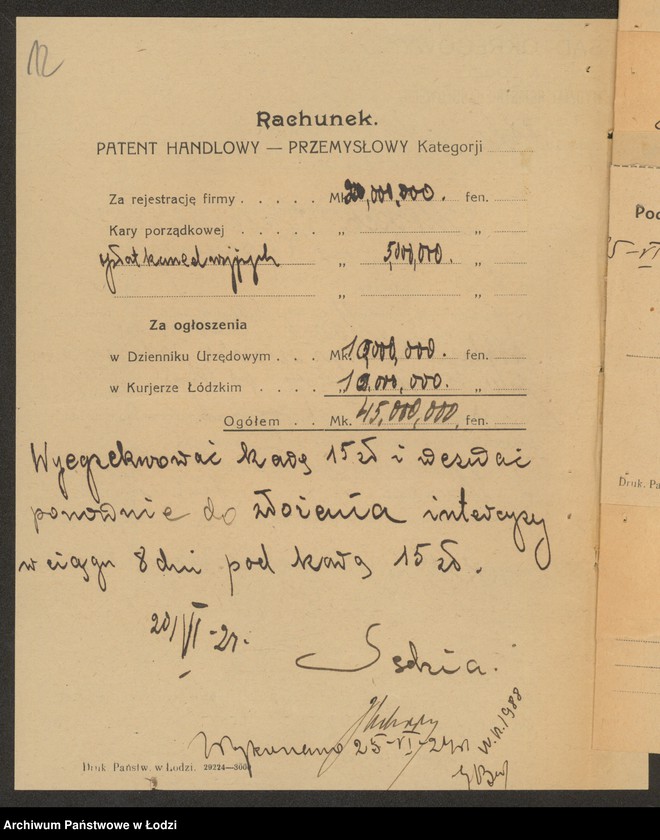 12
Rachunek.
PATENT HANDLOWY — PRZEMYSŁOWY Kategorji
Za rejestrację firmy . . . . . Mk. 20,000,000. fen.
Kary porządkowej . . . . . „ „
opłat kancelaryjnych „ 5,000,000. „
„ „
Za ogłoszenia
w Dzienniku Urzędowym . . . Mk. 10,000,000. fen.
w Kurjerze Łódzkim . . . . „ 10,000,000. „
Ogółem . . Mk. 45,000,000. fen.
Wyegzekwować karę 15 zł i wezwać
ponownie do złożenia intercyzy
w ciągu 8 dni pod karą 15 zł.
20/VI-24.
Sędzia.
Wykonano 25-VI-24
W.n. 1988
Druk Państw. w Łodzi. 29224—3000
Druk. Pa